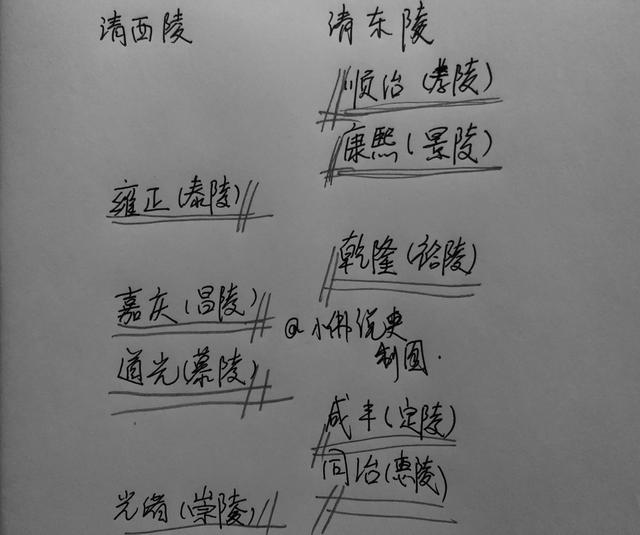 清西陵 清东陵
顺治(孝陵)
康熙(景陵)
雍正(泰陵)
乾隆(裕陵)
嘉庆(昌陵)
@小彬说史
制图.
道光(慕陵)
咸丰(定陵)
同治(惠陵)
光绪(崇陵)